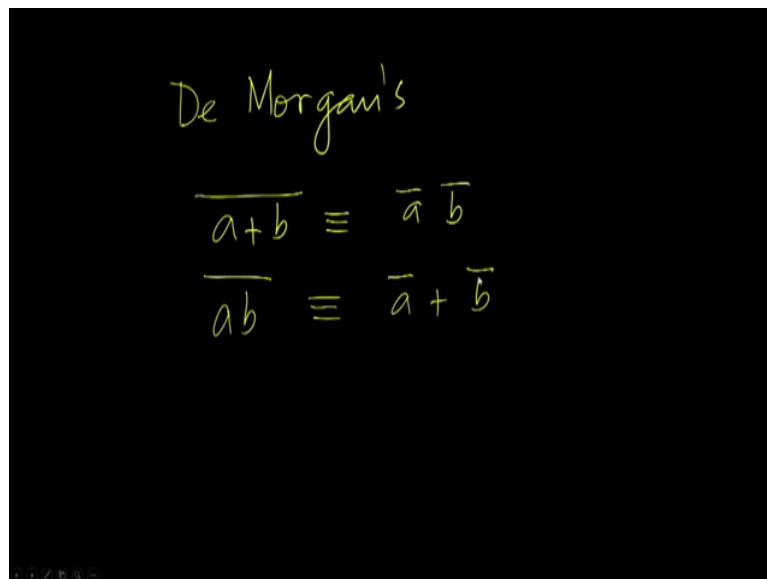 De Morgan's
$\overline{a+b} \equiv \overline{a}\,\overline{b}$
$\overline{ab} \equiv \overline{a}+\overline{b}$